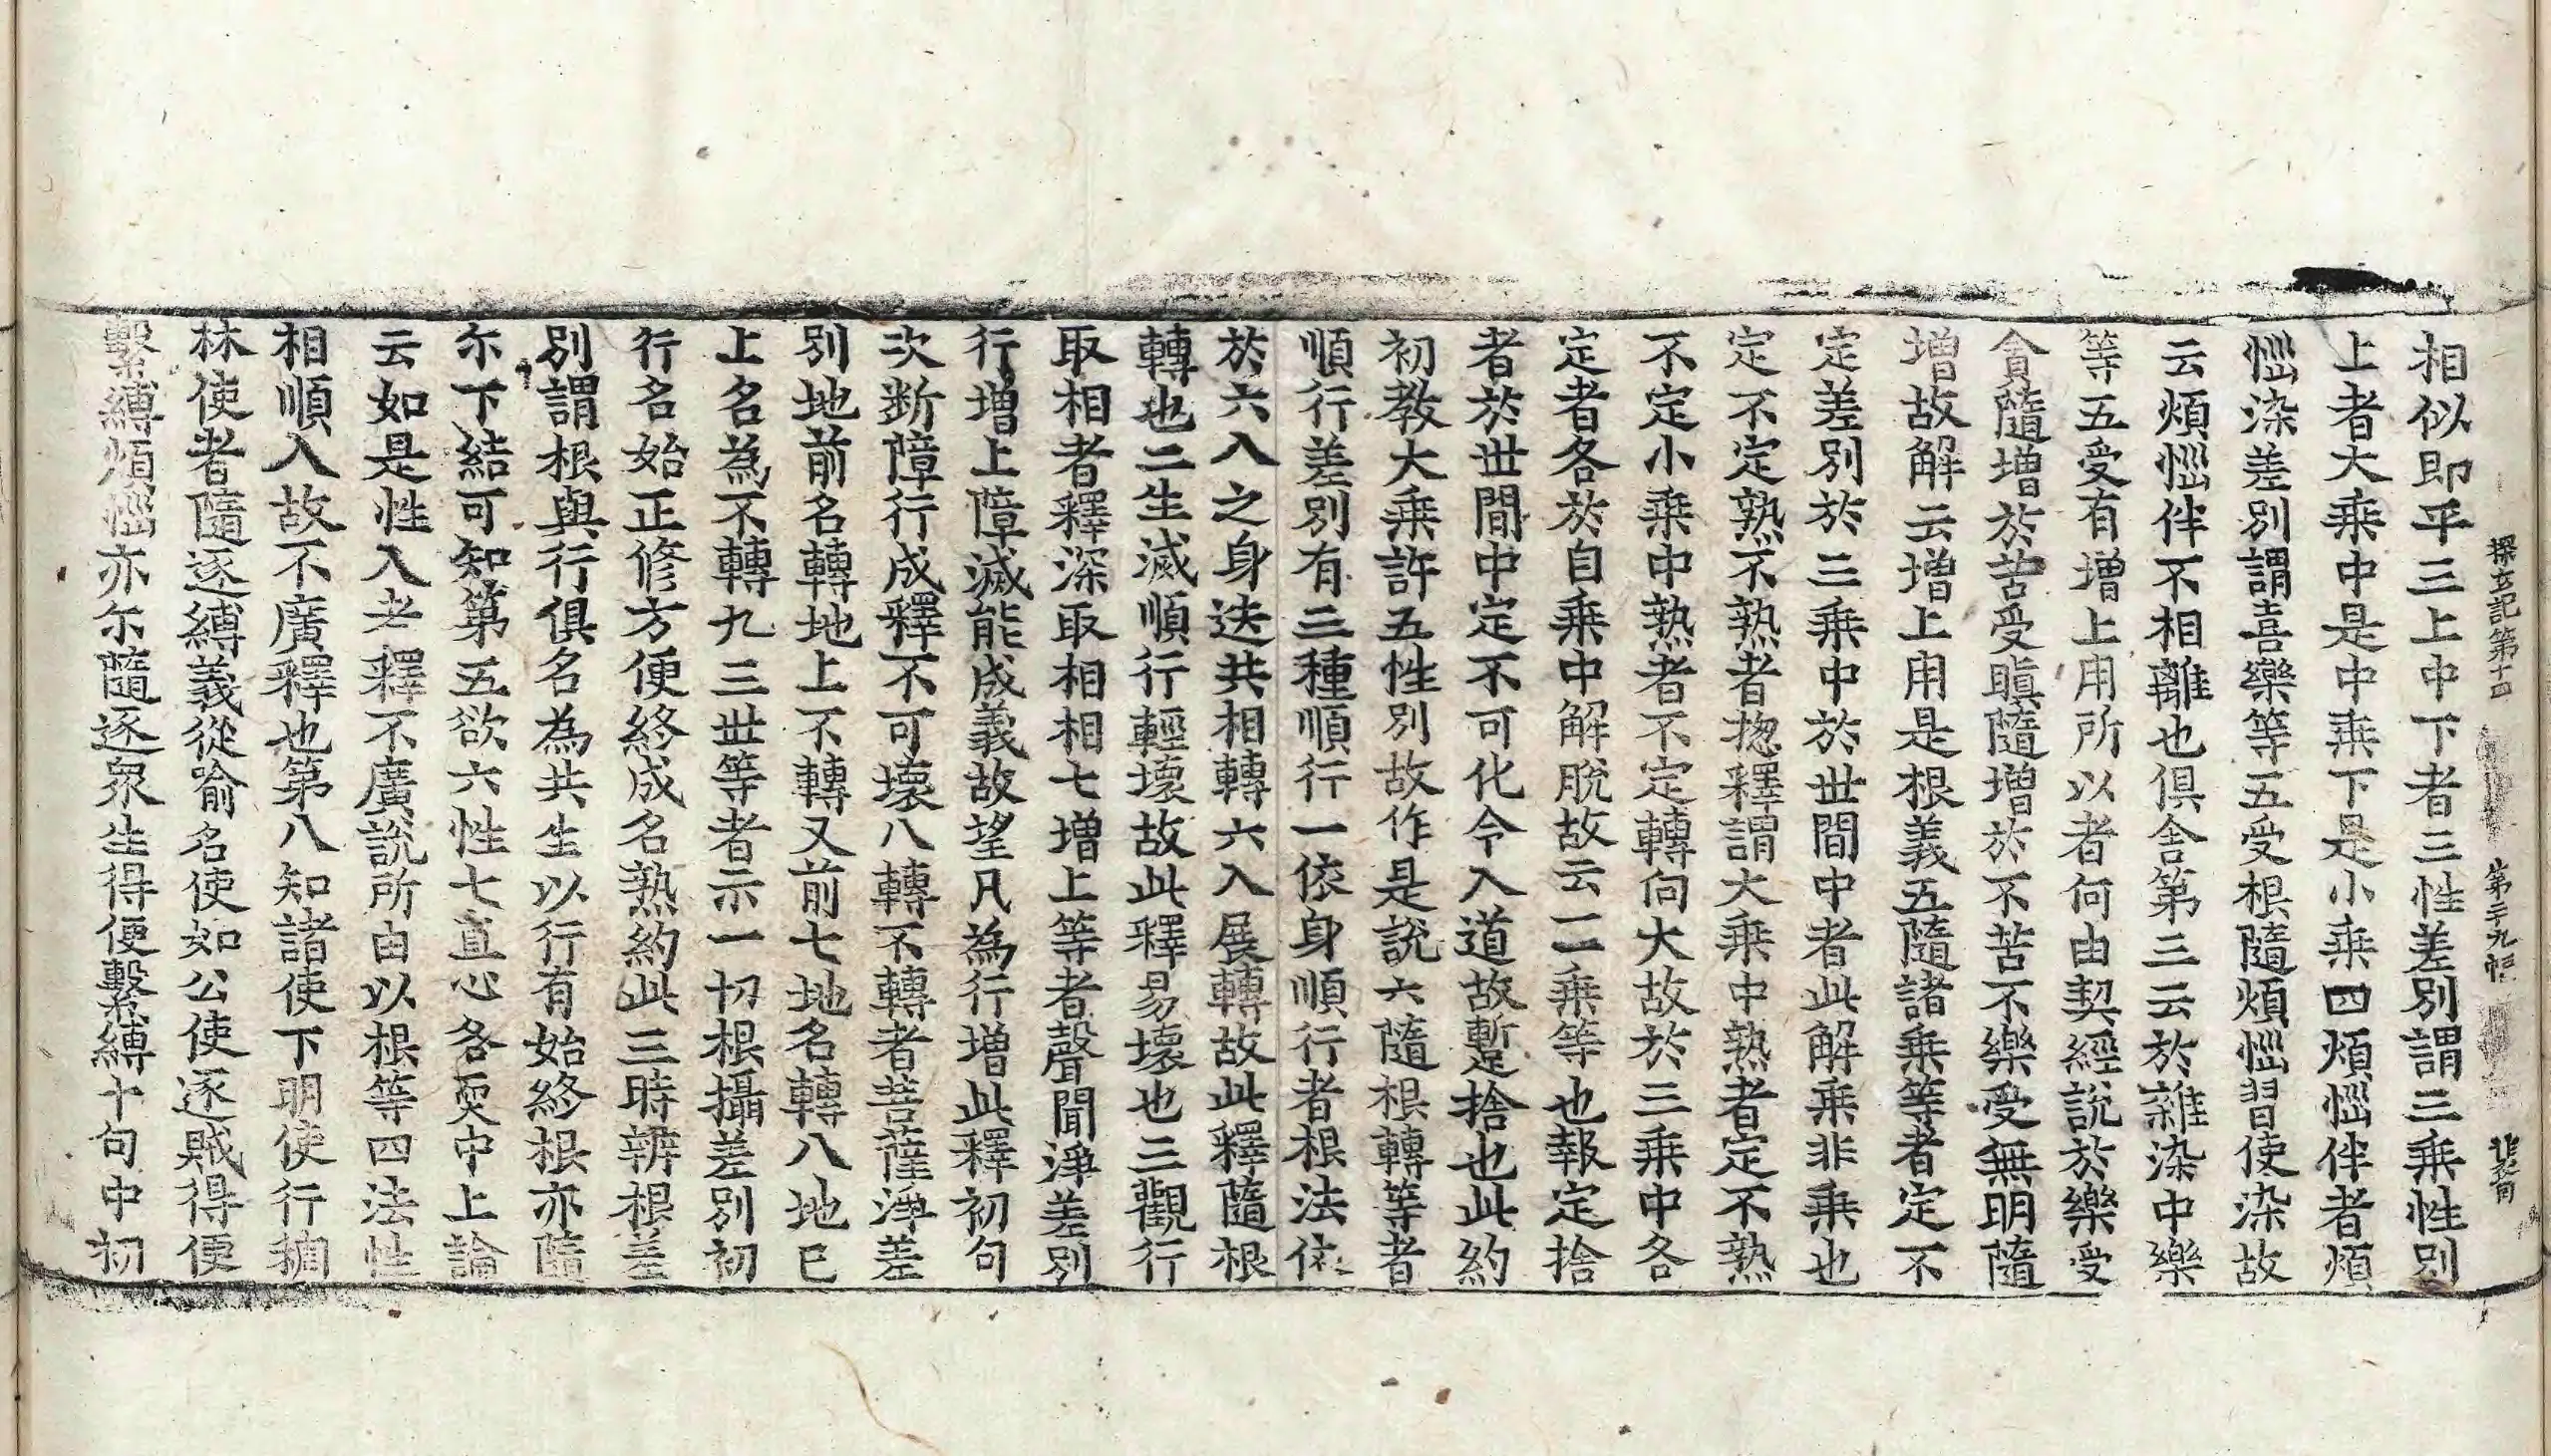 探玄記第十四　第二十九帳
相似即平三上中下者三性差別謂三乘性別
上者大乘中是中乘下是小乘四煩𢙉伴者煩
𢙉染差別謂喜樂等五受根隨煩𢙉習使染故
云煩𢙉伴不相離也俱舍第三云於雜染中樂
等五受有增上用所以者何由契經說於樂受
貪隨增於苦受瞋隨增於不苦不樂受無明隨
增故解云增上用是根義五隨諸乘等者定不
定差別於三乘中於世間中者此解乘非乘也
定不定熟不熟者揔釋謂大乘中熟者定不熟
不定小乘中熟者不定轉向大故於三乘中各
定者各於自乘中解脫故云一一乘等也報定捨
者於世間中定不可化令入道故蹔捨也此約
初教大乘許五性別故作是說六隨根轉等者
順行差別有三種順行一依身順行者根法依
於六入之身迭共相轉六入展轉故此釋隨根
轉也二生滅順行輕壞故此釋易壞也三觀行
取相者釋深取相相七增上等者聲聞淨差別
行增上障滅能成義故望凡為行增此釋初句
次斷障行成釋不可壞八轉不轉者菩薩淨差
別地前名轉地上不轉又前七地名轉八地已
上名為不轉九三世等者示一切根攝差別初
行名始正修方便終成名熟約此三時辨根差
別謂根與行俱名為共生以行有始終根亦隨
尒下結可知第五欲六性七直心各㪅中上論
云如是性入者釋不廣說所由以根等四法性
相順入故不廣釋也第八知諸使下明使行稠
林使者隨逐縛義從喻名使如公使逐賊得便
繫縛煩𢙉亦尒隨逐衆生得便繫縛十句中初